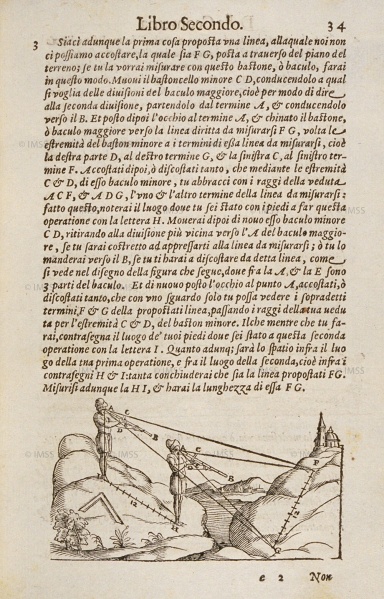 Libro Secondo. 34
3 Siaci adunque la prima cosa proposta vna linea, alla quale noi non
ci possiamo accostare, la quale sia F G, posta a trauerso del piano del
terreno; se tu la vorrai misurare con questo bastone, ò baculo, farai
in questo modo. Muoui il bastoncello minore C D, conducendolo a qual
si voglia delle diuisioni del baculo maggiore, cioè per modo di dire
alla seconda diuisione, partendolo dal termine A, & conducendolo
verso il B. Et posto dipoi l'occhio al termine A, & chinato il bastone,
ò baculo maggiore verso la linea diritta da misurarsi F G, volta le
estremità del baston minore a i termini di essa linea da misurarsi, cioè
la destra parte D, al destro termine G, & la sinistra C, al sinistro ter-
mine F. Accostati dipoi, ò discostati tanto, che mediante le estremità
C & D, di esso baculo minore, tu abbracci con i raggi della veduta
A C F, & A D G, l'vno & l'altro termine della linea da misurarsi:
fatto questo, noterai il luogo doue tu sei stato con i piedi a far questa
operatione con la lettera H. Mouerai dipoi di nouo esso baculo minore
C D, ritirando alla diuisione più vicina verso l'A del baculo maggio-
re, se tu sarai costretto ad appressarti alla linea da misurarsi; ò tu lo
manderai verso il B, se tu ti harai a discostare da detta linea, come
si vede nel disegno della figura che segue, doue fra la A, & la E sono
3 parti del baculo. Et di nuouo posto l'occhio al punto A, accostati, ò
discostati tanto, che con vno sguardo solo tu possa vedere i sopradetti
termini, F & G della propostati linea, passando i raggi della tua uedu
ta per l'estremità C & D, del baston minore. Ilche mentre che tu fa-
rai, contrasegna il luogo de' tuoi piedi doue sei stato a questa seconda
operatione con la lettera I. Quanto adunq; sarà lo spatio infra il luo
go della tua prima operatione, e fra il luogo della seconda, cioè infra i
contrasegni H & I: tanta conchiuderai che sia la linea propostati FG.
Misurisi adunque la H I, & harai la lunghezza di essa F G.
C
D
B
C
D
B
F
12
12
G
H
e 2 Non
© IMSS